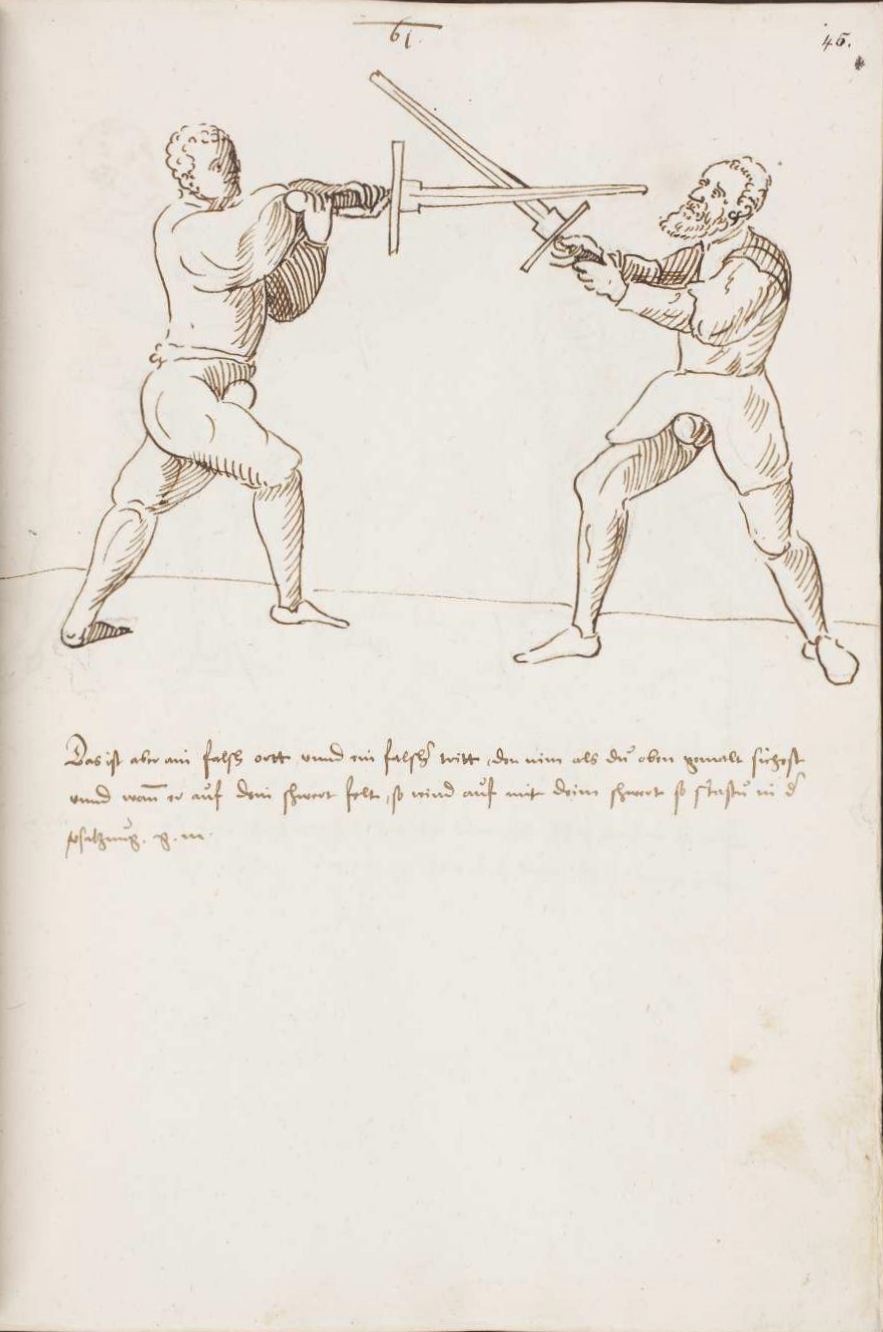 61.
46.
Das ist aber ain falsch ortt unnd ein falsch tritt, den nim als du oben gemalt sichest
unnd wan̄ er auf dein schwert felt, so wind auf mit deim schwert so stastu in d